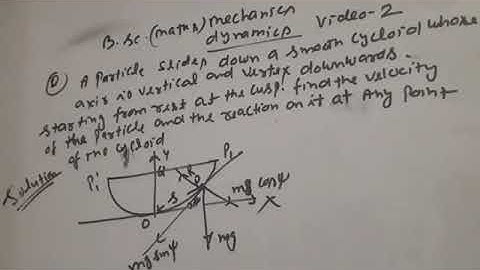 B.Sc.(maths) mechanics
dynamics Video-2
A Particle slides down a smooth cycloid whose
axis is vertical and vertex downwards.
starting from rest at the cusp. find the velocity
of the particle and the reaction on it at any point
of the cycloid
Solution
Y
P1
P1'
R
P
S
mg cosψ
O
X
mg sinψ
mg